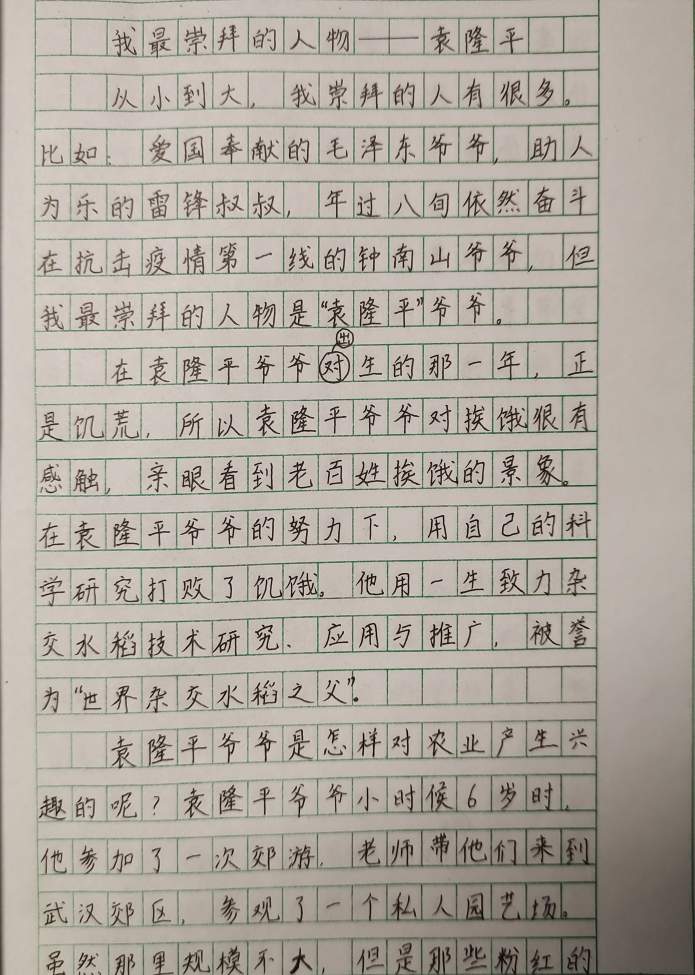 我最崇拜的人物——袁隆平
从小到大，我崇拜的人有很多。
比如：爱国奉献的毛泽东爷爷，助人
为乐的雷锋叔叔，年过八旬依然奋斗
在抗击疫情第一线的钟南山爷爷，但
我最崇拜的人物是“袁隆平”爷爷。
出
在袁隆平爷爷对生的那一年，正
是饥荒，所以袁隆平爷爷对挨饿很有
感触，亲眼看到老百姓挨饿的景象。
在袁隆平爷爷的努力下，用自己的科
学研究打败了饥饿。他用一生致力杂
交水稻技术研究、应用与推广，被誉
为“世界杂交水稻之父”。
袁隆平爷爷是怎样对农业产生兴
趣的呢？袁隆平爷爷小时候6岁时，
他参加了一次郊游，老师带他们来到
武汉郊区，参观了一个私人园艺场。
虽然那里规模不大，但是那些粉红的